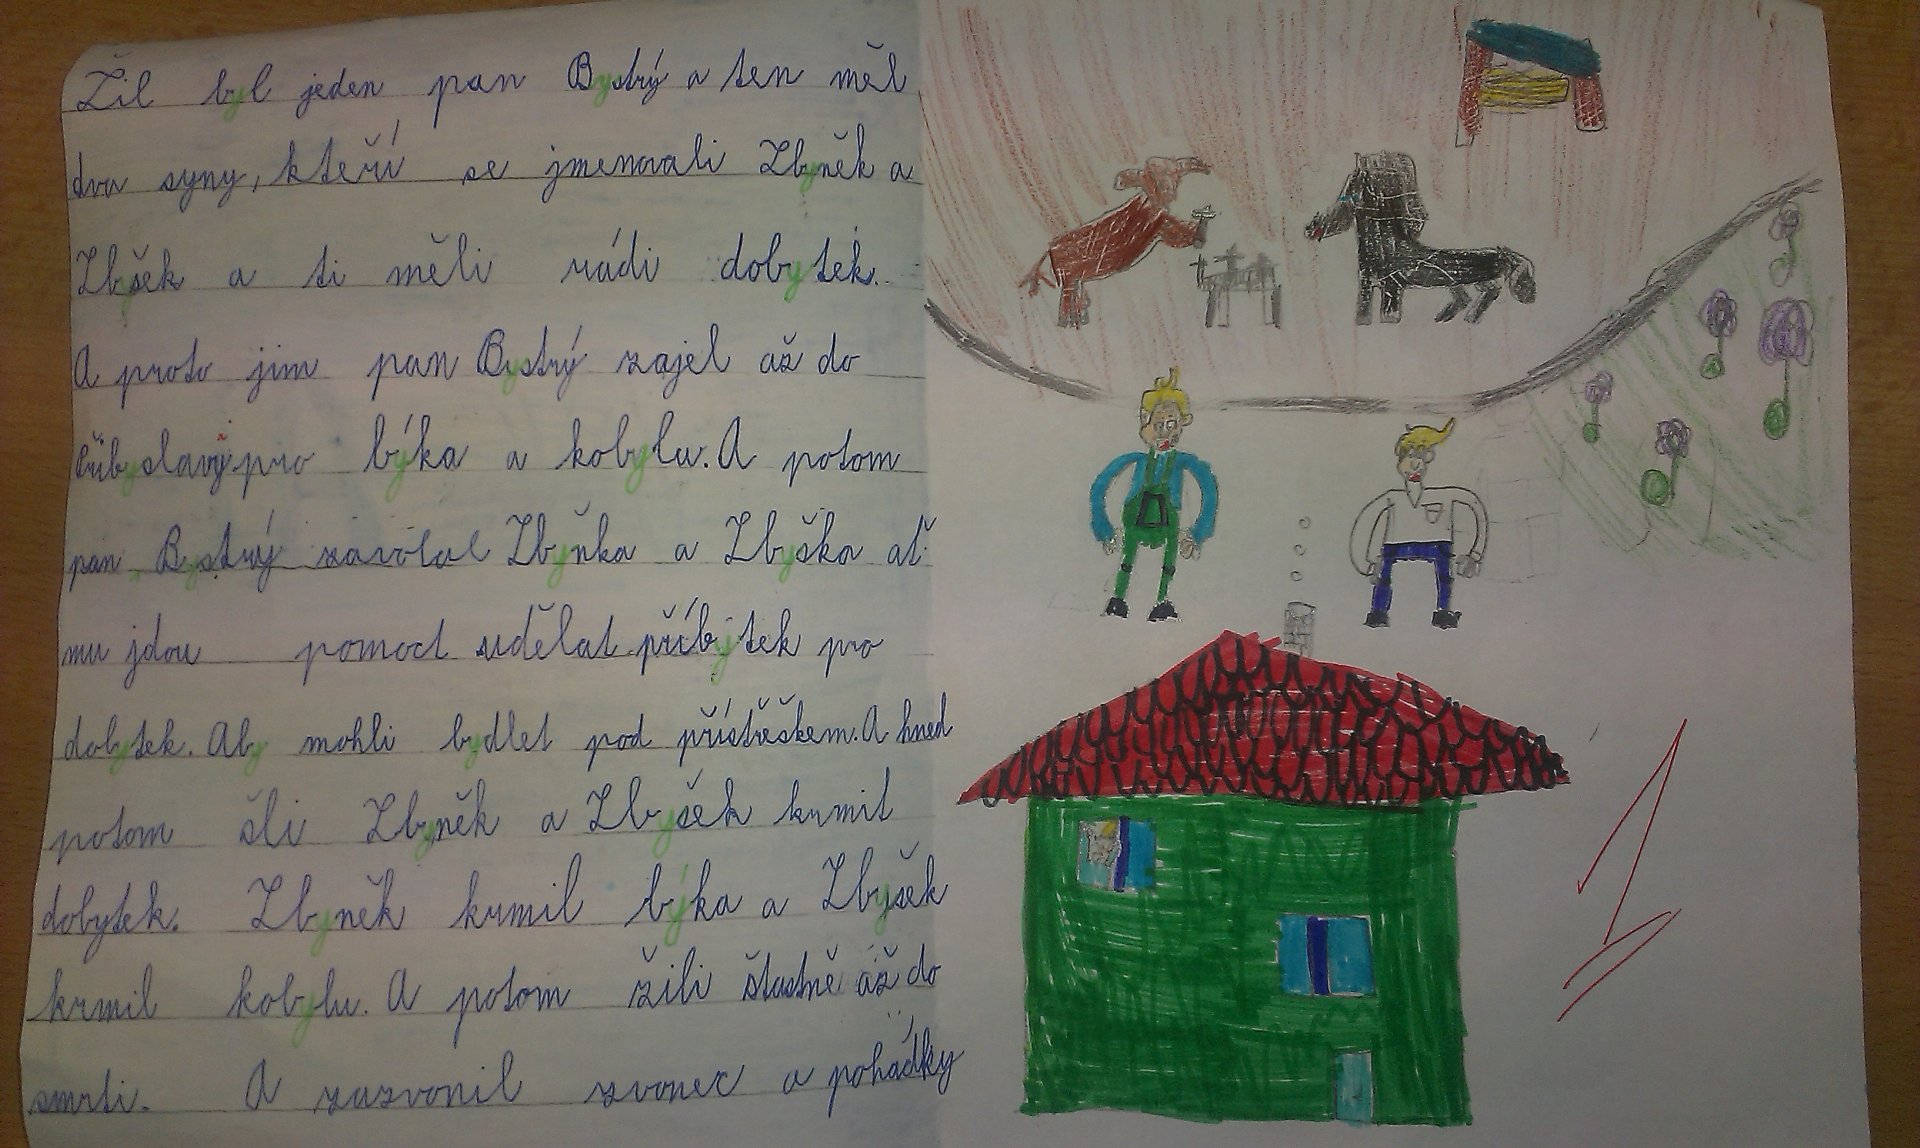 Žil byl jeden pan Bystrý a ten měl
dva syny, kteří se jmenovali Zbyněk a
Zbyšek a ti měli rádi dobytek.
A proto jim pan Bystrý zajel až do
pro býka a kobylu. A potom
pan Bystrý zavolal Zbyňka a Zbyška ať
mu jdou pomoct udělat příbytek pro
dobytek. Aby mohli bydlet pod přístřeškem. A hned
potom šli Zbyněk a Zbyšek krmit
dobytek. Zbyněk krmil býka a Zbyšek
krmil kobylu. A potom žili šťastně až do
smrti. A zazvonil zvonec a pohádky
1